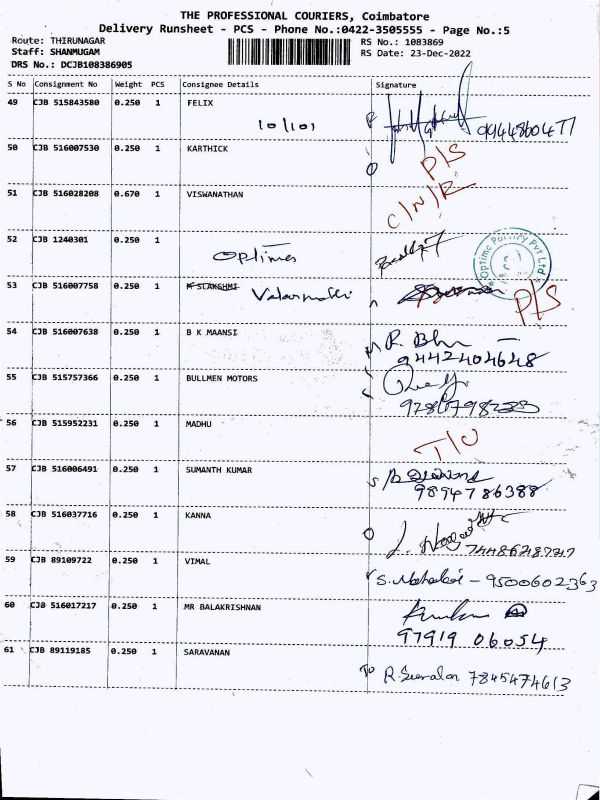 THE PROFESSIONAL COURIERS, Coimbatore
Delivery Runsheet - PCS - Phone No.:0422-3505555 - Page No.:5
Route: THIRUNAGAR RS No.: 1083869
Staff: SHANMUGAM RS Date: 23-Dec-2022
DRS No.: DCJB108386905
S No Consignment No Weight PCS Consignee Details Signature
49 CJB 515843580 0.250 1 FELIX
10/101 9944860477
50 CJB 516007530 0.250 1 KARTHICK P/S
51 CJB 516028208 0.670 1 VISWANATHAN C/N/R
52 CJB 1240301 0.250 1
Optimes Optime Polity Pvt Ltd
53 CJB 516007758 0.250 1 K SLAKSHMI Valarmathi P/S
54 CJB 516007638 0.250 1 B K MAANSI R. Bh
9442404648
55 CJB 515757366 0.250 1 BULLMEN MOTORS
56 CJB 515952231 0.250 1 MADHU T/C
57 CJB 516006491 0.250 1 SUMANTH KUMAR
9894786388
58 CJB 516037716 0.250 1 KANNA
59 CJB 89109722 0.250 1 VIMAL
- 9500602363
60 CJB 516017217 0.250 1 MR BALAKRISHNAN
97919 06054
61 CJB 89119185 0.250 1 SARAVANAN
7845474613